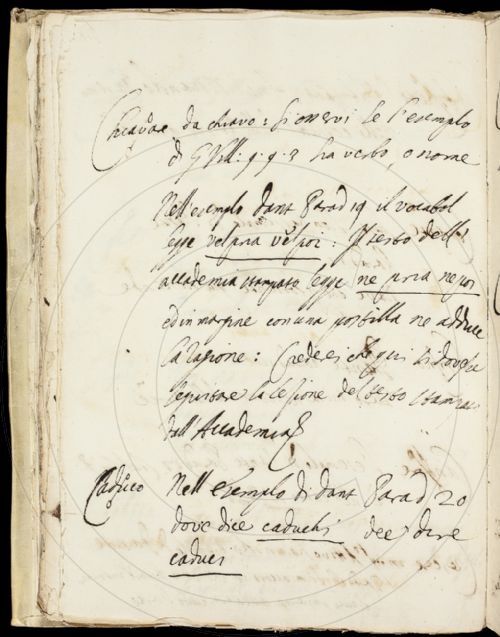 Chiavare da chiavo: si osservi se l'esempio
di G Vill: 9. 9. 3 ha verbo, o nome
Nell'esempio dant Parad 19 il vocabol
legge vel pria vel poi: Il testo dell'
accademia stampato legge ne pria ne poi
ed in margine con una postilla ne adduce
la ragione: Crederei che qui si dovesse
seguitare la lezione del testo stampat
dall'Accademia
Caduco Nell'esempio di dant Parad 20
dove dice caduchi dee dire
caduci